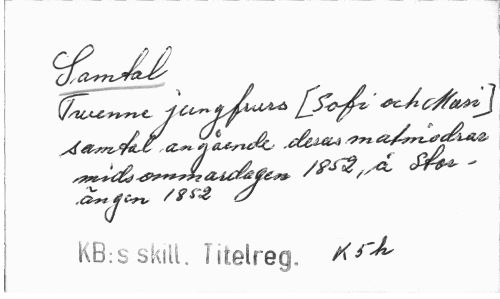 Samtal
Twenne jungfrurs [Sofi och Mari]
samtal angående deras matmödrar
midsommardagen 1852, å Stor-
ängen 1852
KB:s skill. Titelreg. K5h